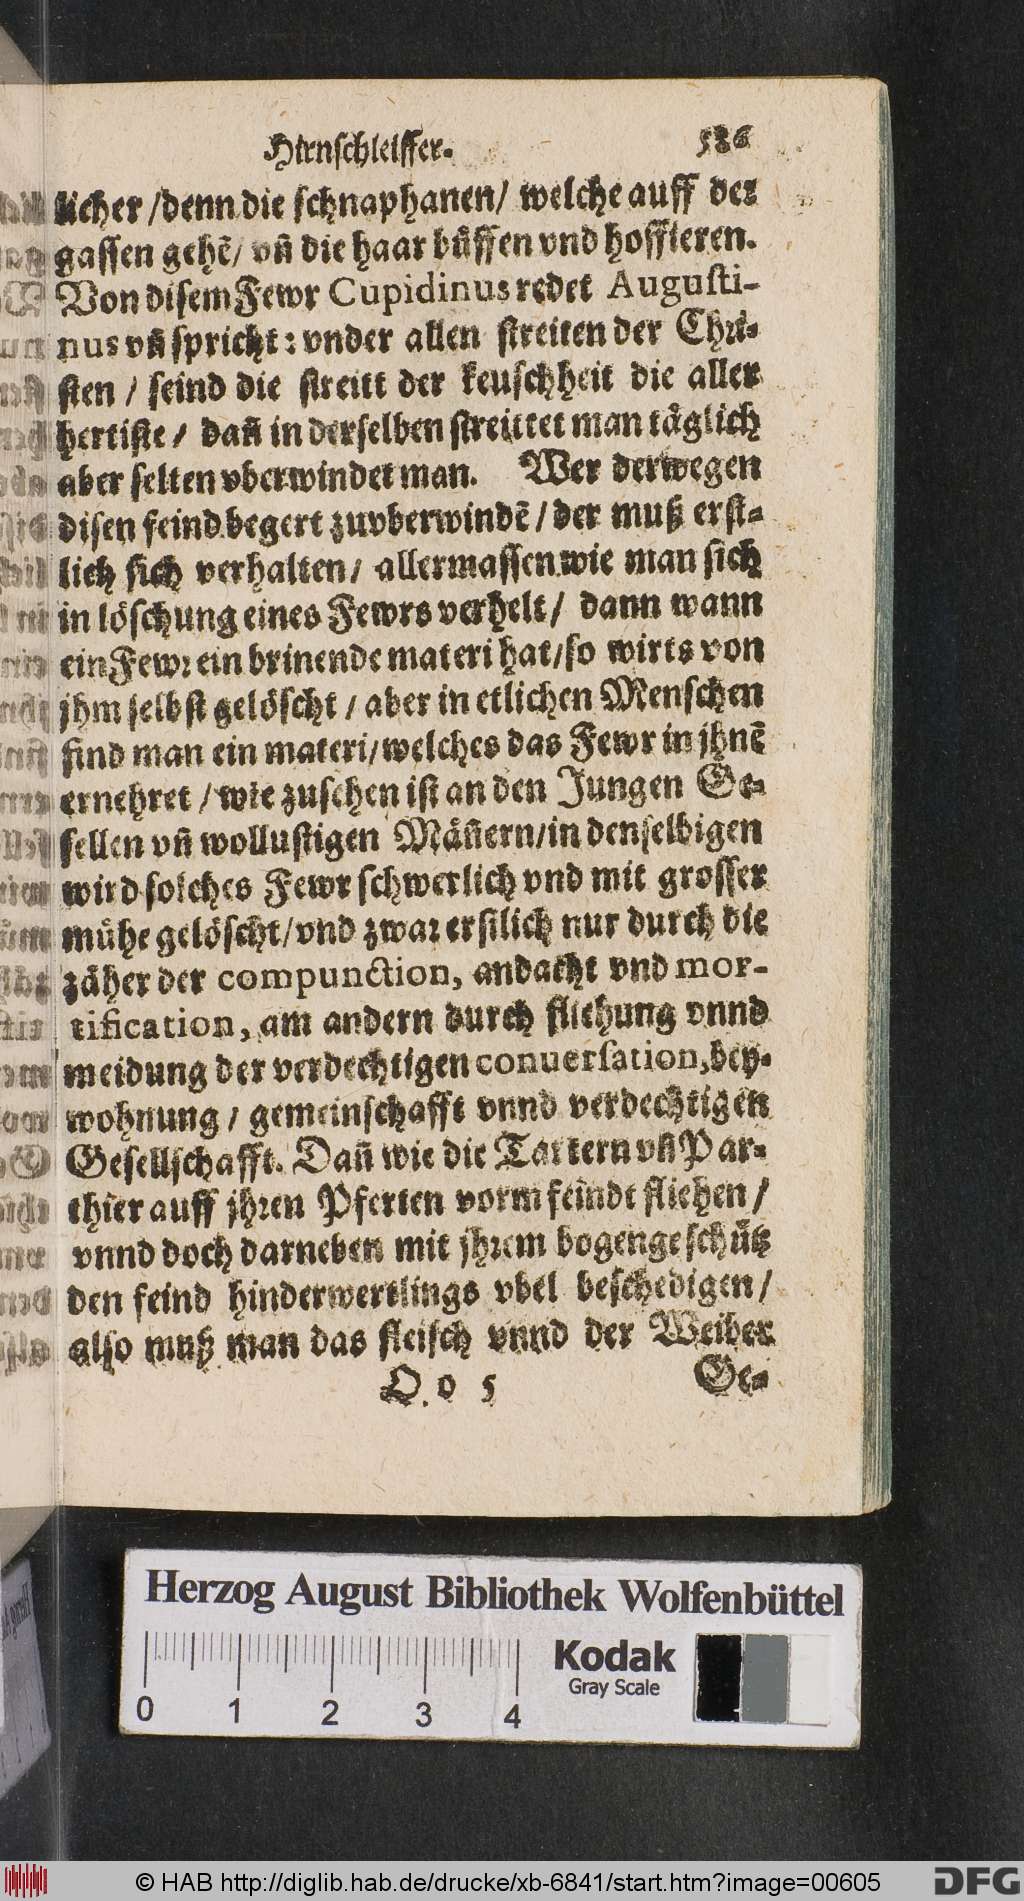 Hirnschleiffer. 586
licher / denn die schnaphanen / welche auff der
gassen gehē / vñ die haar büffen vnd hoffieren.
Von disem Fewr Cupidinus redet Augusti-
nus vñ spricht: vnder allen streiten der Chri-
sten / seind die streitt der keuschheit die aller
hertiste / dañ in derselben streittet man täglich
aber selten vberwindet man. Wer derwegen
disen feind begert zuvberwindē / der muß erst-
lich sich verhalten / allermassen wie man sich
in löschung eines Fewrs verhelt / dann wann
ein Fewr ein brinende materi hat / so wirts von
jhm selbst gelöscht / aber in etlichen Menschen
find man ein materi / welches das Fewr in jhnē
ernehret / wie zusehen ist an den Jungen Ge-
sellen vñ wollustigen Mäñern / in denselbigen
wird solches Fewr schwerlich vnd mit grosser
mühe gelöscht / vnd zwar erstlich nur durch die
zäher der compunction, andacht vnd mor-
tification, am andern durch fliehung vnnd
meidung der verdechtigen conuersation, bey-
wohnung / gemeinschafft vnnd verdechtigen
Gesellschafft. Dañ wie die Tartern vñ Par-
thier auff jhren Pferten vorm feindt fliehen /
vnnd doch darneben mit jhrem bogengeschütz
den feind hinderwertlings vbel beschedigen /
also muß man das fleisch vnnd der Weiber
Oo 5 Ge-
Herzog August Bibliothek Wolfenbüttel
Kodak
Gray Scale
0 1 2 3 4
© HAB http://diglib.hab.de/drucke/xb-6841/start.htm?image=00605
DFG